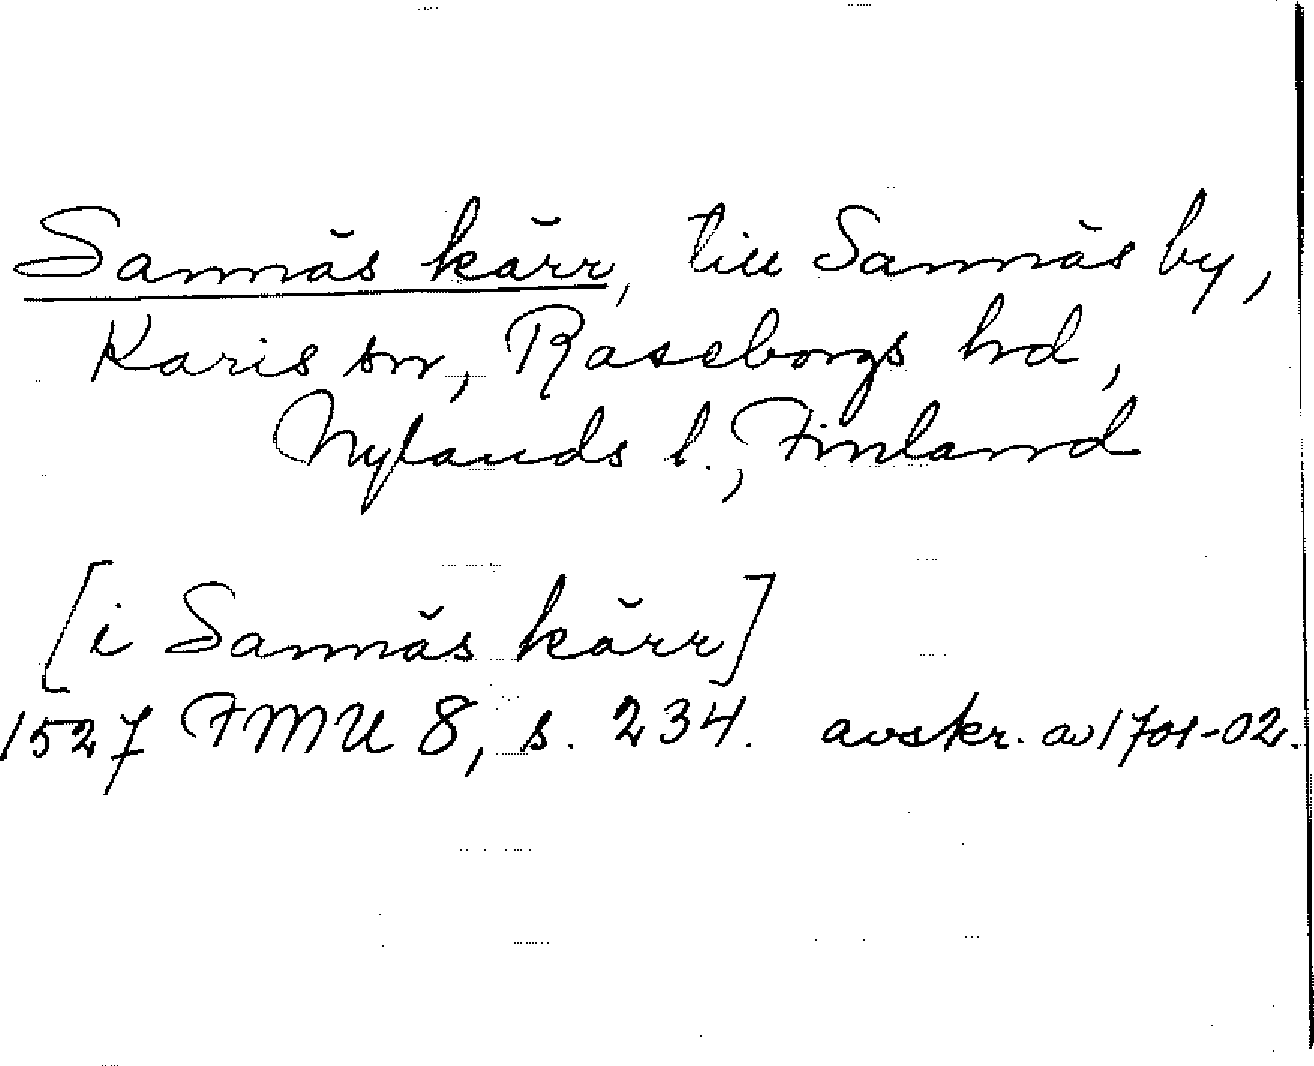 Sannäs kärr, till Sannäs by,
Karis sn, Raseborgs hd,
Nylands l., Finland
[i Sannäs kärr]
1527 FMU 8, s. 234. avskr. av 1701-02.